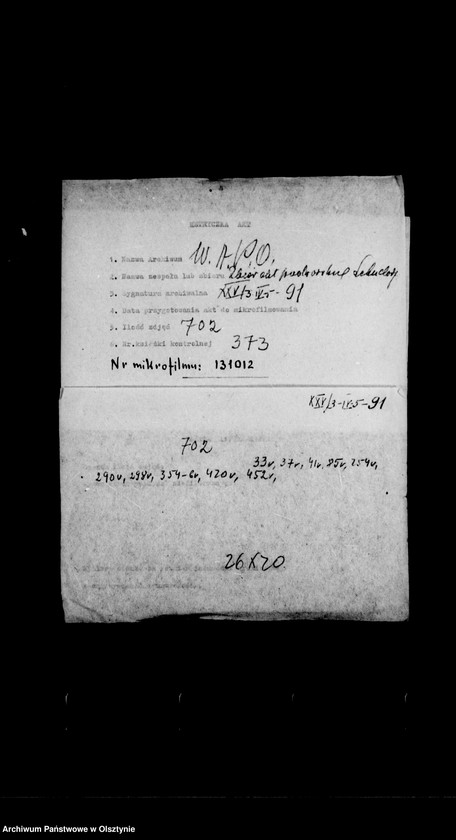 METRYCZKA AKT
1. Nazwa Archiwum W. A. P. O.
2. Nazwa zespołu lub zbioru Zbiór akt
3. Sygnatura archiwalna XXV/3 IV5-91
4. Data przygotowania akt do mikrofilmowania
5. Ilość zdjęć 702
6. Nr.książki kontrolnej 373
Nr mikrofilmu: 131012
XXV/3-IV.5-91
702
33v, 37v, 41v, 85v, 254v,
290v, 298v, 354-6v, 420v, 452v,
26X20
Archiwum Państwowe w Olsztynie